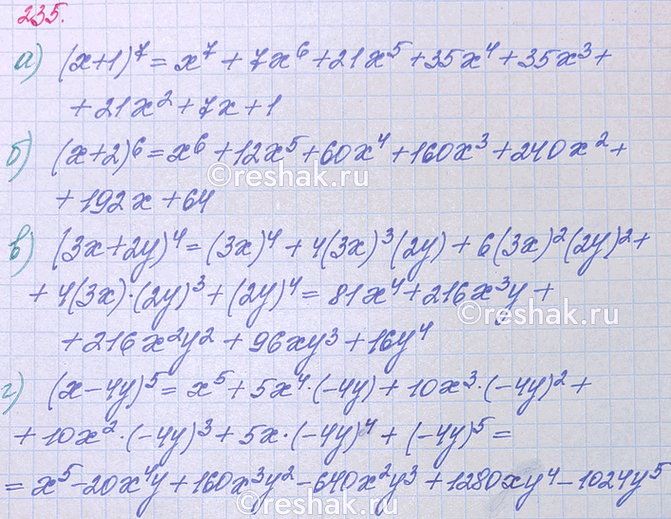 235.
а) (x+1)^7 = x^7 + 7x^6 + 21x^5 + 35x^4 + 35x^3 +
+ 21x^2 + 7x + 1
б) (x+2)^6 = x^6 + 12x^5 + 60x^4 + 160x^3 + 240x^2 +
©reshak.ru
+ 192x + 64
в) (3x+2y)^4 = (3x)^4 + 4(3x)^3(2y) + 6(3x)^2(2y)^2 +
+ 4(3x)·(2y)^3 + (2y)^4 = 81x^4 + 216x^3y +
©reshak.ru
+ 216x^2y^2 + 96xy^3 + 16y^4
г) (x-4y)^5 = x^5 + 5x^4·(-4y) + 10x^3·(-4y)^2 +
+ 10x^2·(-4y)^3 + 5x·(-4y)^4 + (-4y)^5 =
= x^5 - 20x^4y + 160x^3y^2 - 640x^2y^3 + 1280xy^4 - 1024y^5
©reshak.ru